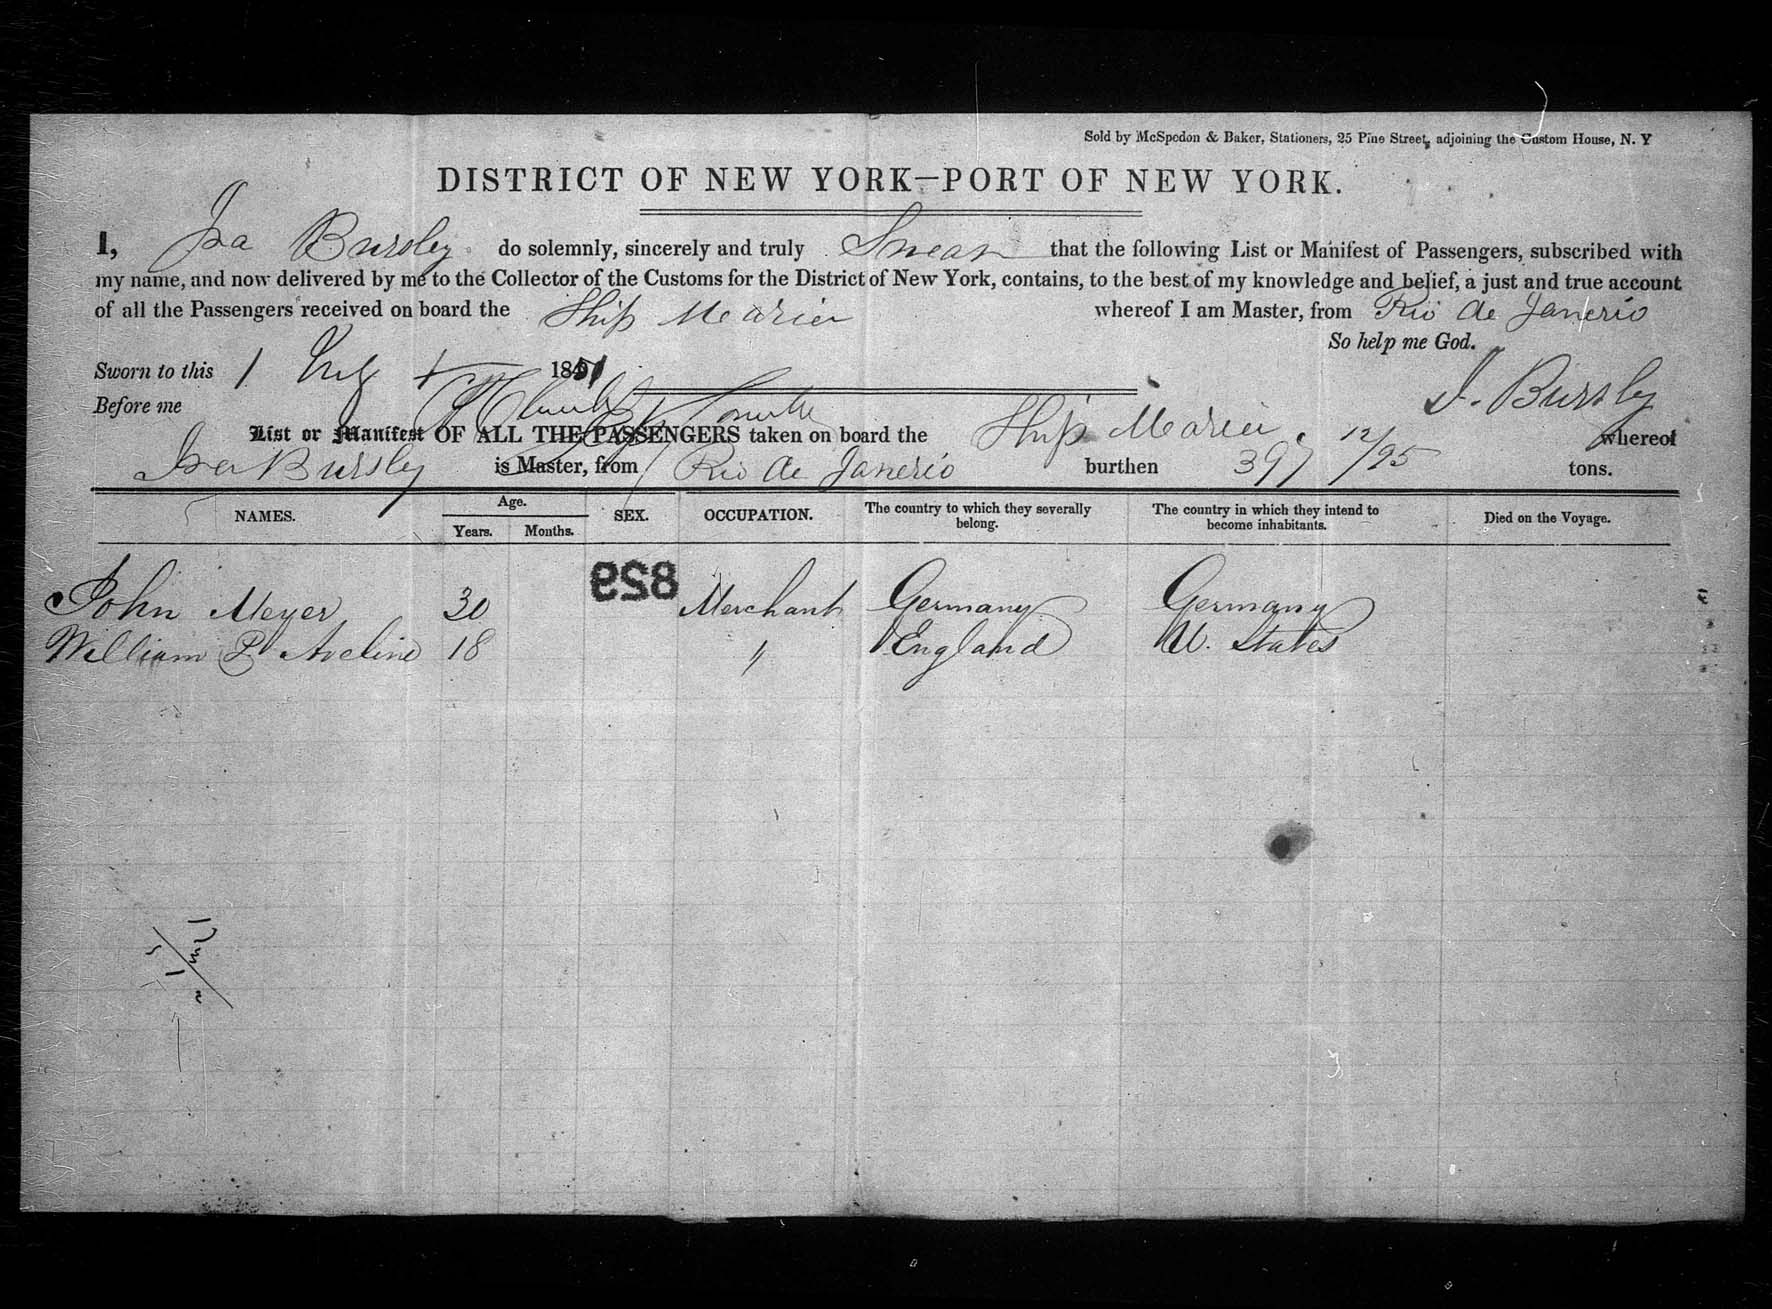 Sold by McSpedon & Baker, Stationers, 25 Pine Street, adjoining the Custom House, N. Y
DISTRICT OF NEW YORK—PORT OF NEW YORK.
I, Ira Bursley do solemnly, sincerely and truly Swear that the following List or Manifest of Passengers, subscribed with
my name, and now delivered by me to the Collector of the Customs for the District of New York, contains, to the best of my knowledge and belief, a just and true account
of all the Passengers received on board the Ship Maria whereof I am Master, from Rio de Janerio
So help me God.
Sworn to this 1 1851
Before me I. Bursley
List or Manifest OF ALL THE PASSENGERS taken on board the Ship Maria whereof
Ira Bursley is Master, from Rio de Janerio burthen 397 12/95 tons.
NAMES. Age. Years. Months. SEX. OCCUPATION. The country to which they severally belong. The country in which they intend to become inhabitants. Died on the Voyage.
829
John Meyer 30 Merchant Germany Germany
William P Aveline 18 " England U. States